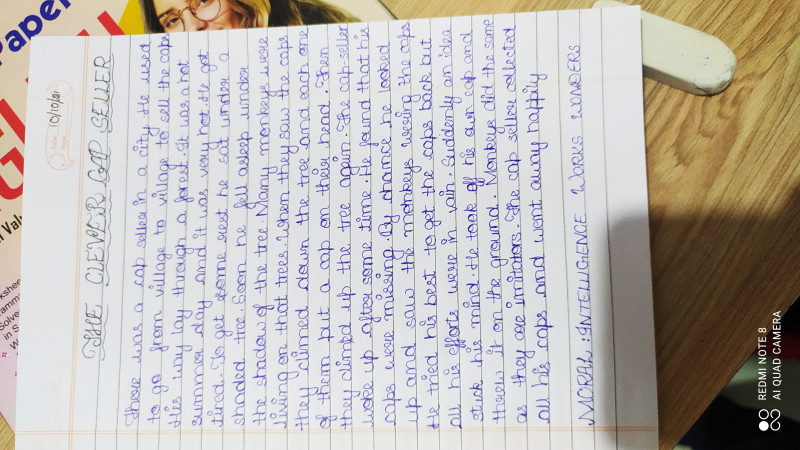 10/10/21
THE CLEVER CAP SELLER
There was a cap seller in a city. He used
to go from village to village to sell the caps
His way lay through a forest. It was a hot
summer day and it was very hot. He got
tired. To get some rest he sat under a
shaded tree. Soon he fell asleep under
the shadow of the tree. Many monkeys were
living on that trees. When they saw the caps
they climed down the tree and each one
of them put a cap on their head. Then
they climbd up the tree again. The cap seller
woke up after some time. He found that his
caps were missing. By chance he looked
up and saw the monkeys wesing the caps
He tried his best to get the caps back but
all his efforts were in vain. Suddenly an idea
stuck his mind. He took off his own cap and
threw it on the ground. Monkeys did the same
as they are imitators. The cap seller collected
all his caps and went away happily
MORAL : INTELLIGENCE WORKS WONDERS
Paper
REDMI NOTE 8
AI QUAD CAMERA